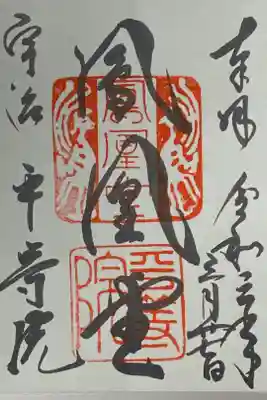 奉拝
令和三年
三月
鳳凰堂
鳳凰堂
平等院
宇治 平等院